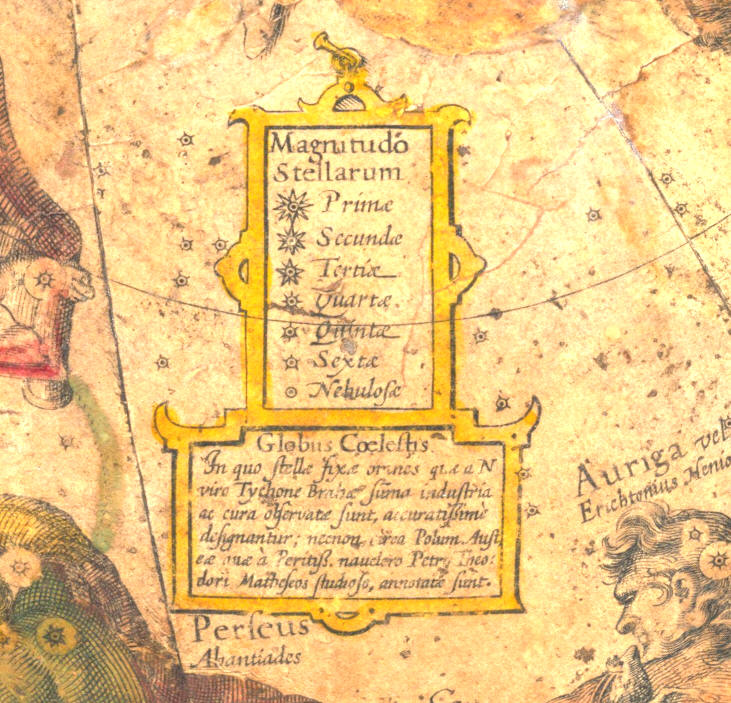 Magnitudo
Stellarum
Primæ
Secundæ
Tertiæ
Quartæ
Quintæ
Sextæ
Nebulosæ
Globus Cœlestis
In quo stellæ fixæ omnes quæ a N
viro Tychone Brahæ suma industria
ac cura observatæ sunt, accuratissime
designantur; necnon circa Polum Aust
eæ quæ à Peritiss. nauclero Petro Theo:
dori Matheseos studioso, annotatæ sunt.
Perseus
Abantiades
Auriga vel
Erichtonius Henio